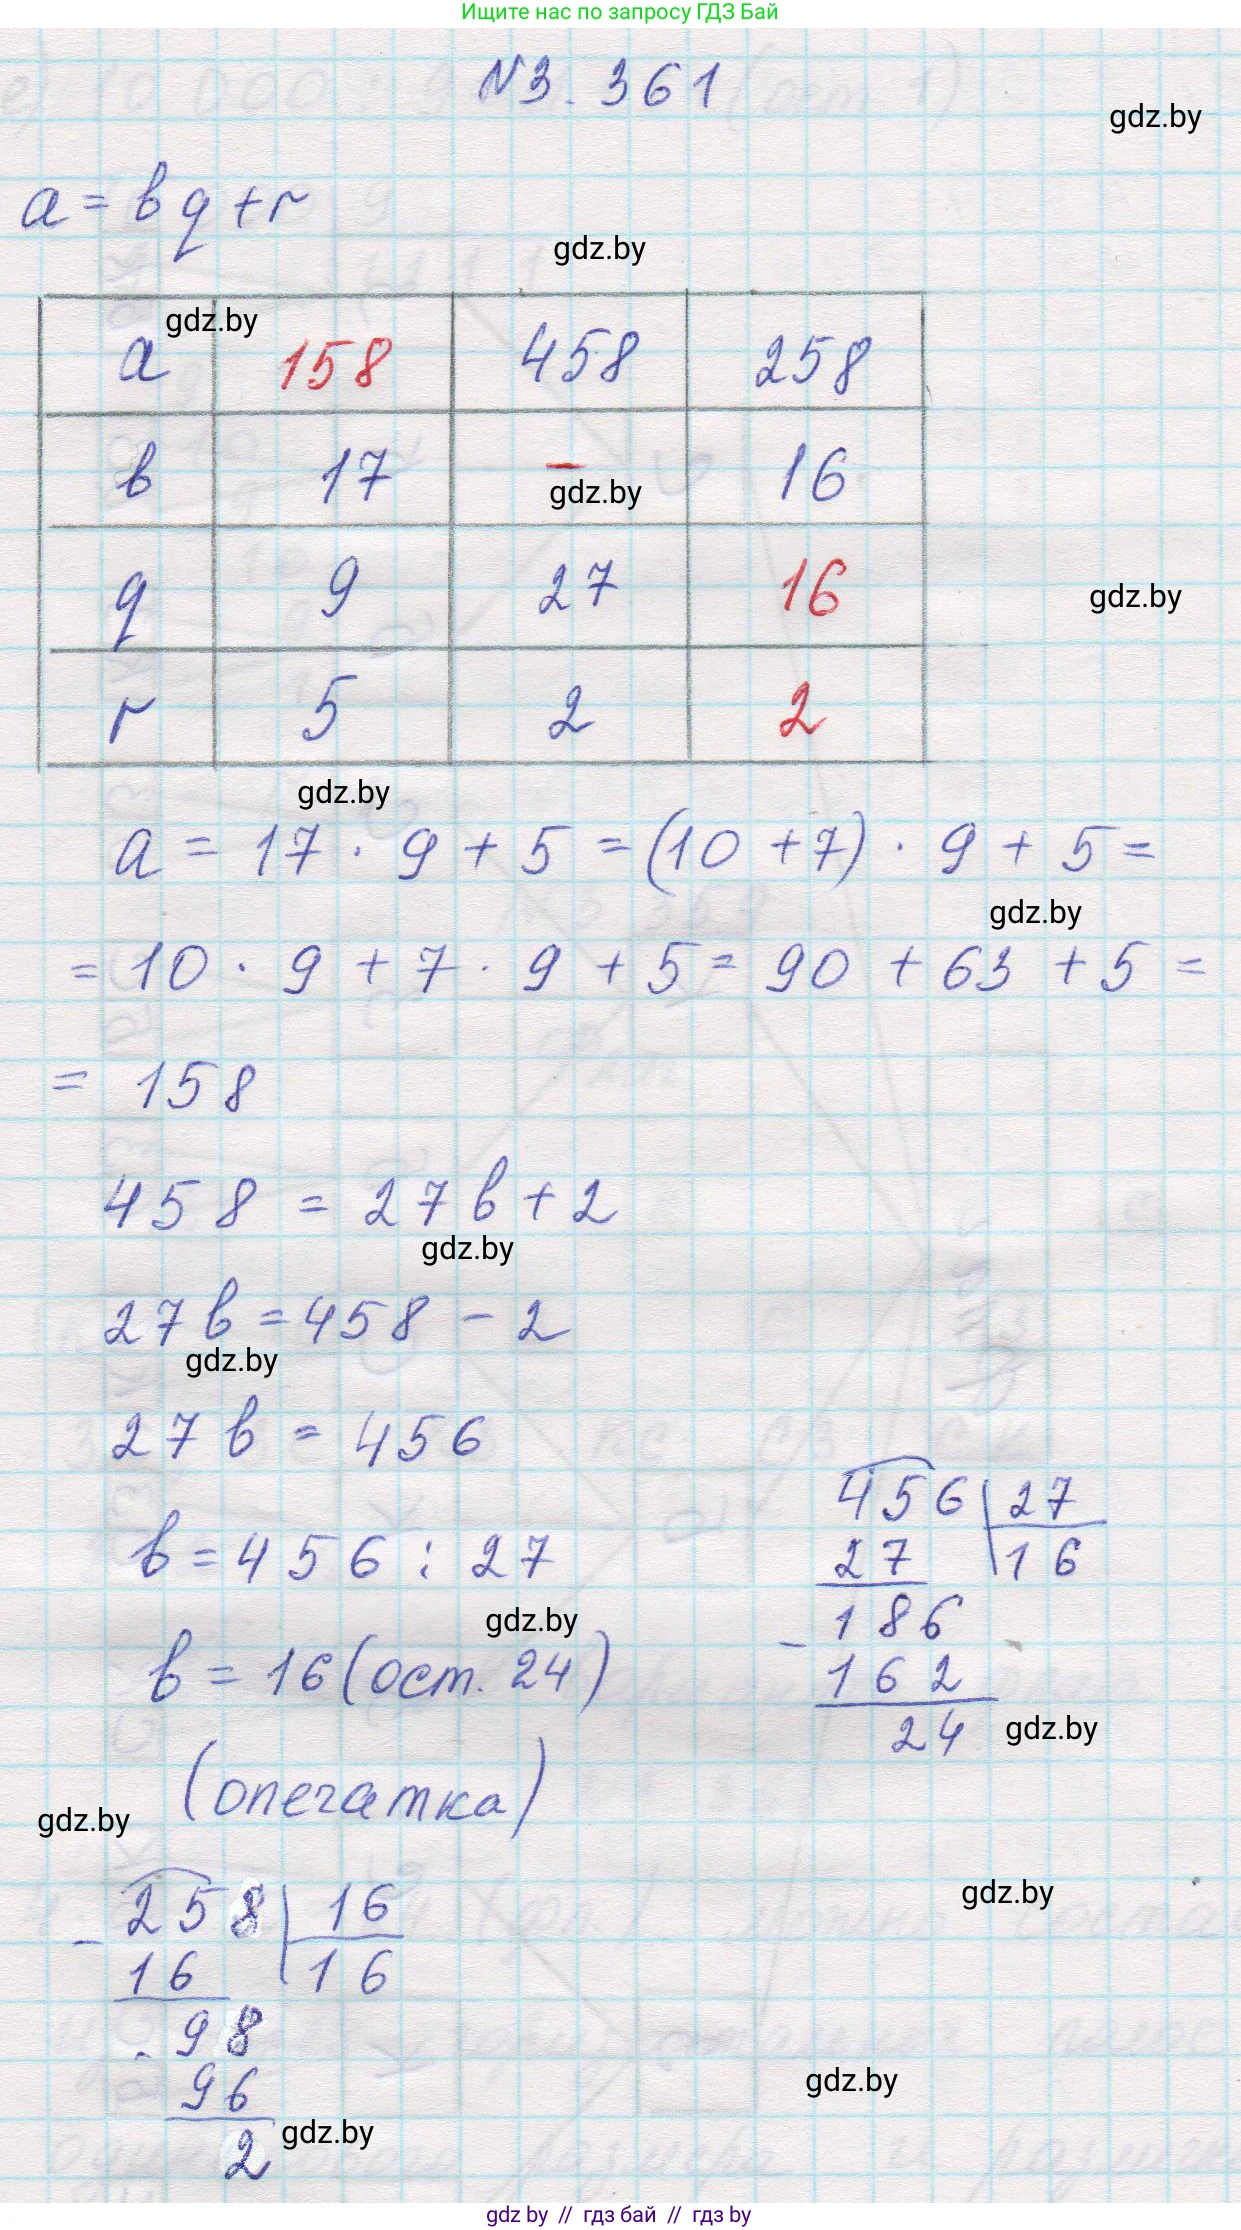 Ищите нас по запросу ГДЗ Бай
N3.361
gdz.by
a = bq + r
gdz.by
gdz.by
a 158 458 258
b 17 – 16
gdz.by
q 9 27 16
gdz.by
r 5 2 2
gdz.by
a = 17 · 9 + 5 = (10 + 7) · 9 + 5 =
gdz.by
= 10 · 9 + 7 · 9 + 5 = 90 + 63 + 5 =
= 158
458 = 27b + 2
gdz.by
27b = 458 - 2
gdz.by
27b = 456
b = 456 : 27
gdz.by
b = 16 (ост. 24)
(опечатка)
456 | 27
27 | 16
186
- 162
24
gdz.by
gdz.by
- 258 | 16
16 | 16
- 98
96
2
gdz.by
gdz.by
gdz.by
gdz.by // гдз бай // гдз by